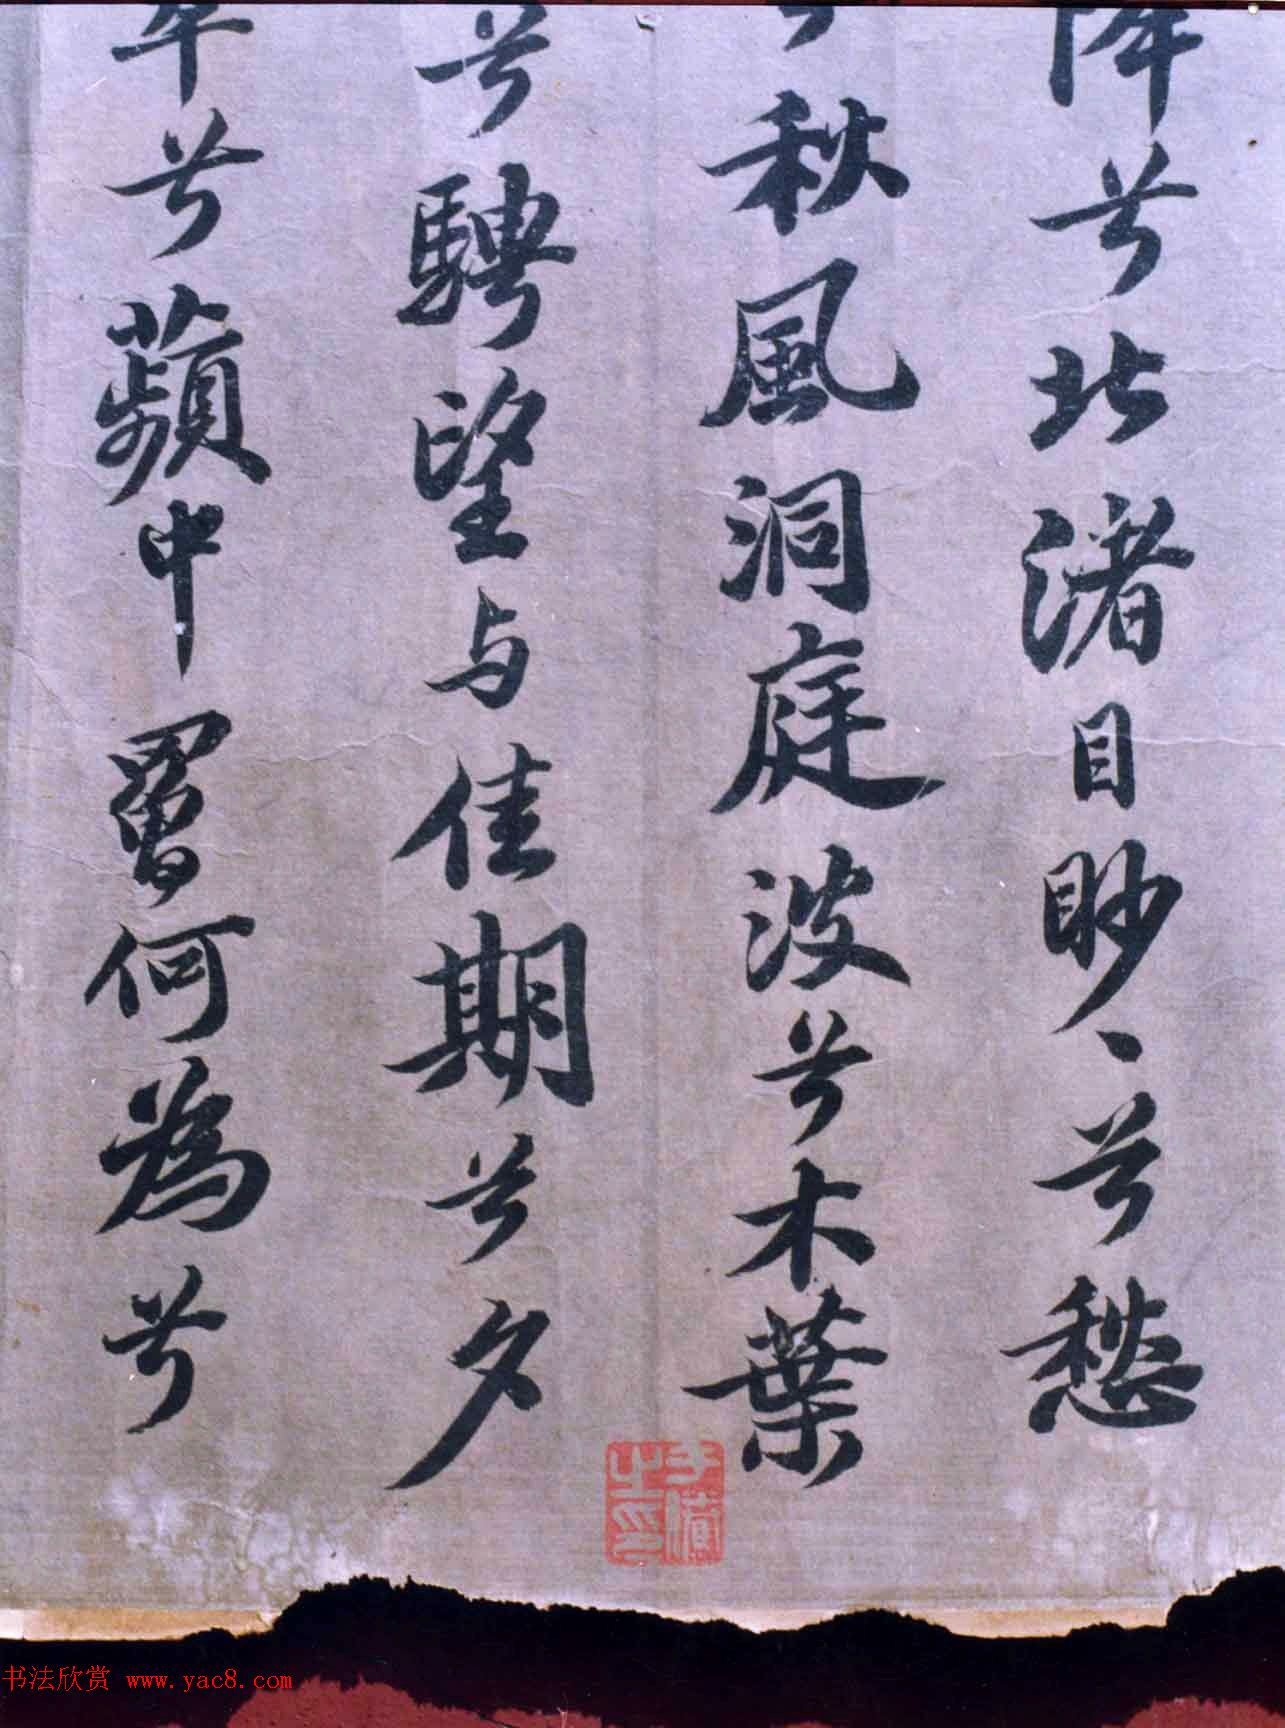 降兮北渚目眇〻兮愁
兮秋風洞庭波兮木葉
兮騁望与佳期兮夕
萃兮蘋中罾何為兮
书法欣赏 www.yac8.com